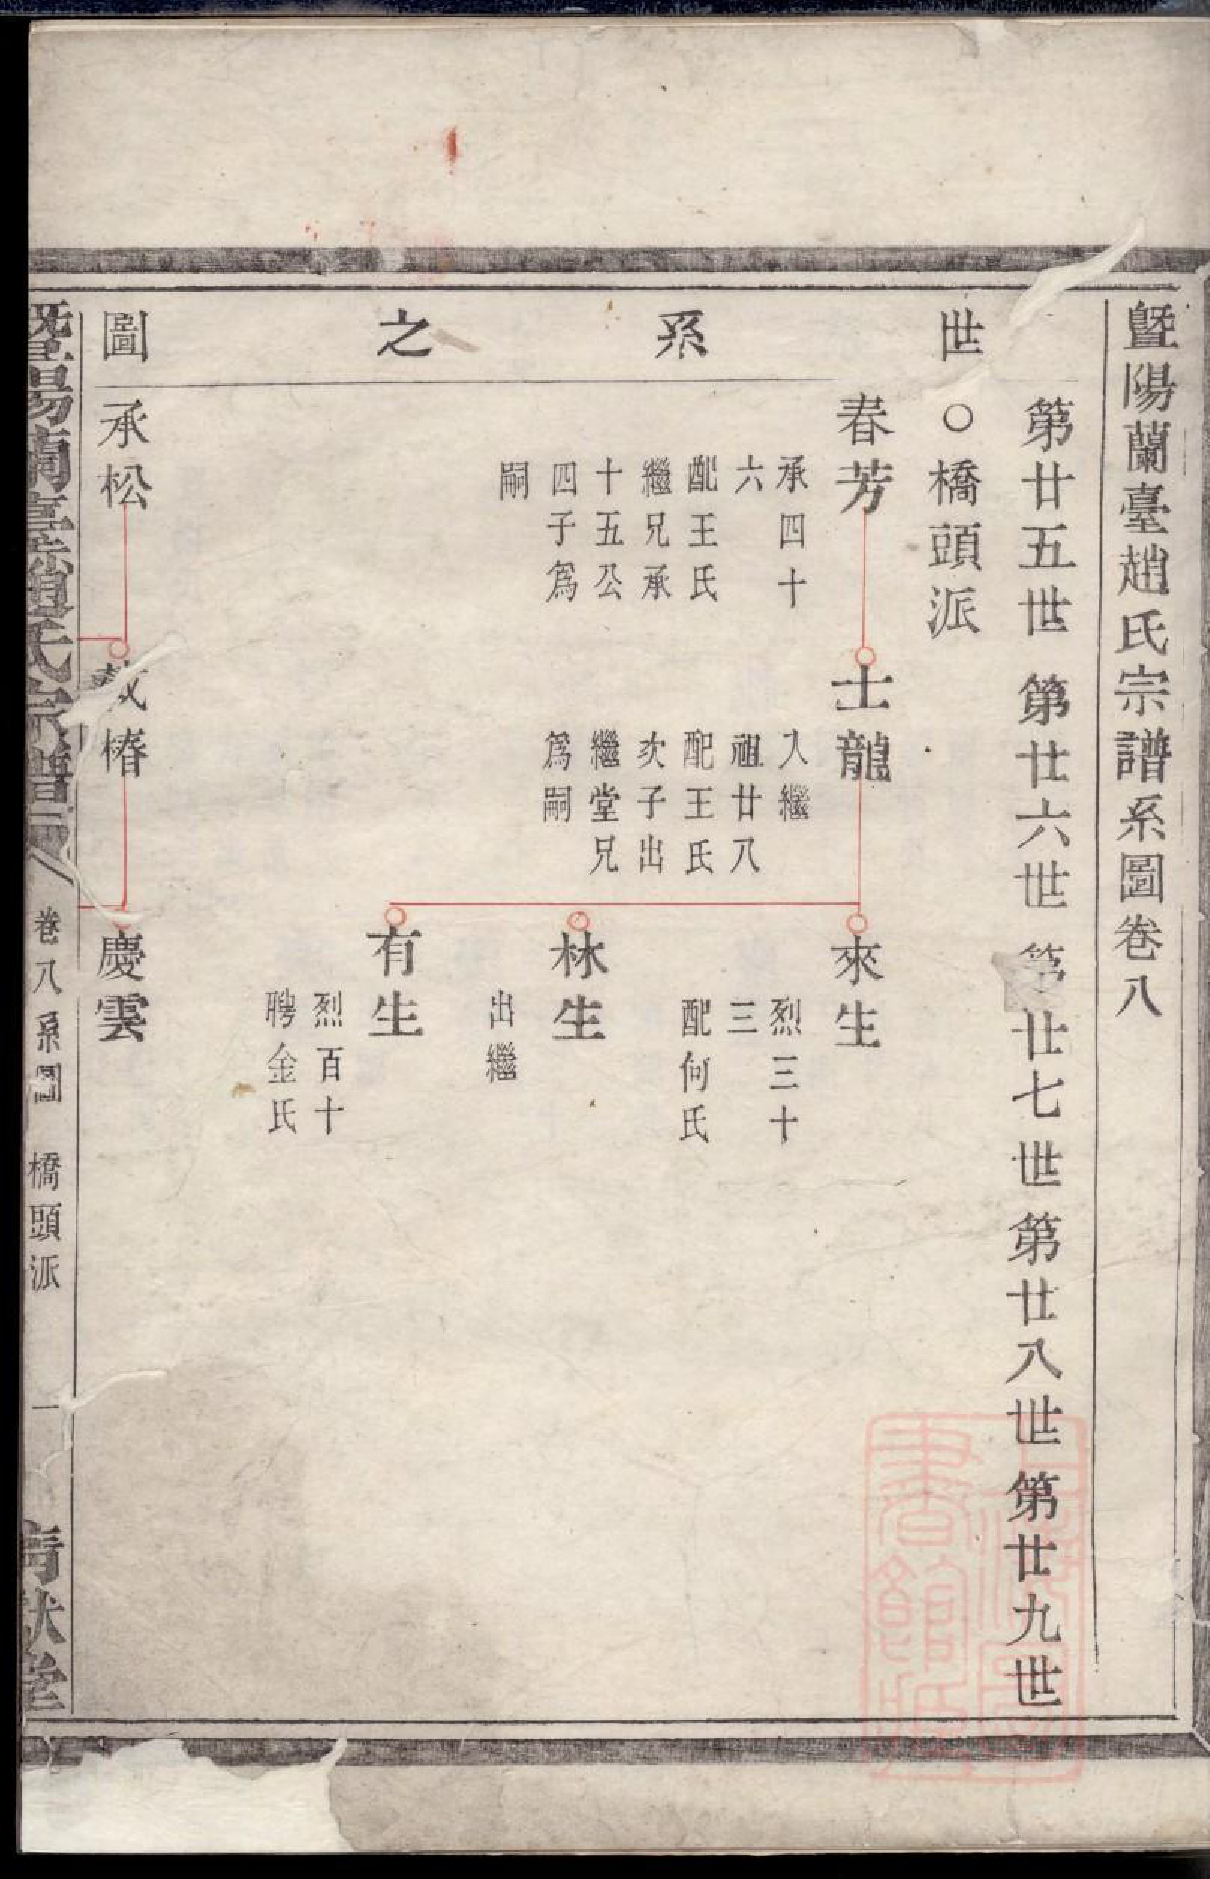 暨陽蘭臺趙氏宗譜系圖卷八
第廿五世 第廿六世 第廿七世 第廿八世 第廿九世
世系之圖
○橋頭派
春芳
承四十
六
配王氏
繼兄承
十五公
四子爲
嗣
士龍
入繼
祖廿八
配王氏
次子出
繼堂兄
爲嗣
來生
烈三十
三
配何氏
林生
出繼
有生
烈百十
聘金氏
承松
椿
慶雲
暨陽蘭臺趙氏宗譜
卷八系圖 橋頭派
一